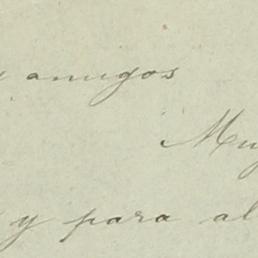 y amigos
Muy
y para al